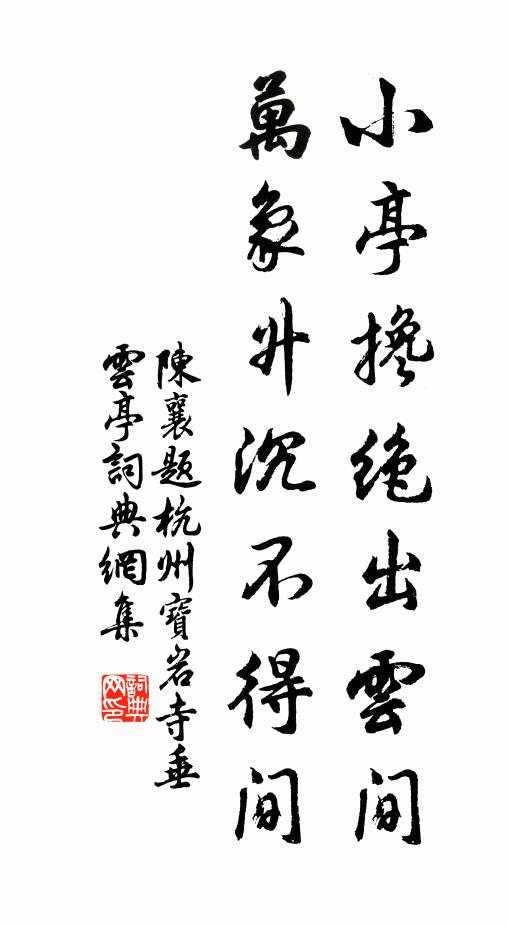 小亭搀绝出雲间
萬象升沉不得间
陳襄题杭州寶岩寺垂
雲亭詞典網集
詞典
网印